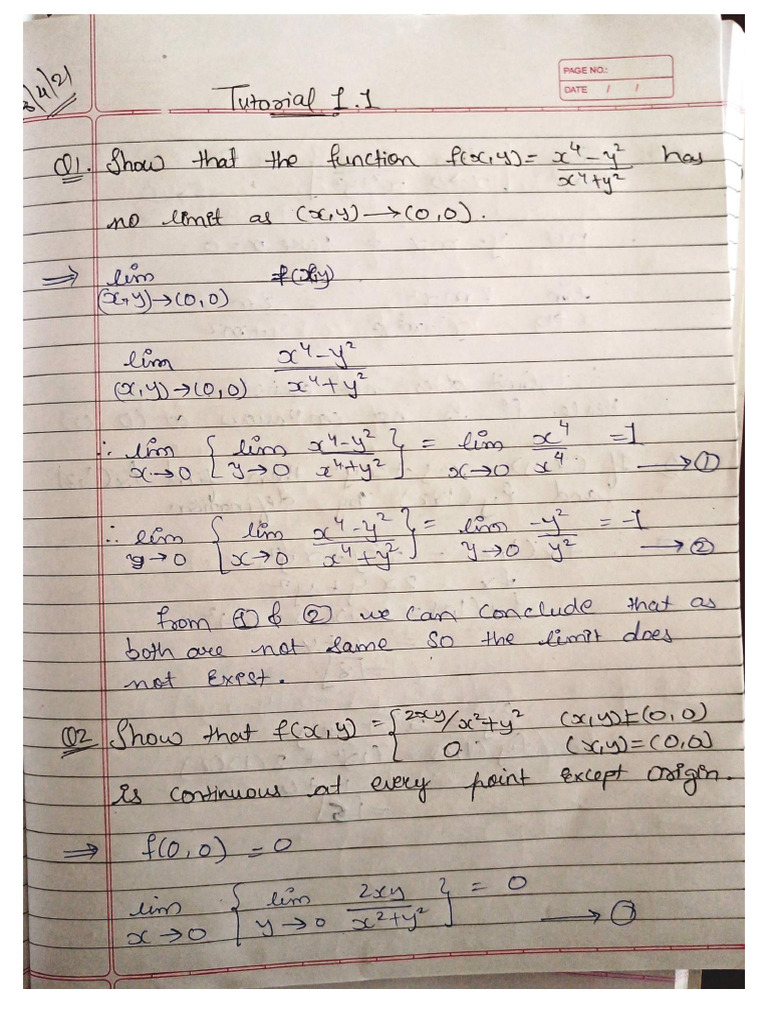 /4/21
PAGE NO.:
DATE / /
Tutorial 1.1
Q1. Show that the function f(x,y) = x⁴-y²/x⁴+y² has
no limit as (x,y)→(0,0).
⇒ lim f(x,y)
(x,y)→(0,0)
lim x⁴-y²/x⁴+y²
(x,y)→(0,0)
∴ lim x→0 { lim y→0 x⁴-y²/x⁴+y² } = lim x→0 x⁴/x⁴ = 1 → ①
∴ lim y→0 { lim x→0 x⁴-y²/x⁴+y² } = lim y→0 -y²/y² = -1 → ②
from ① & ② we can conclude that as
both are not same so the limit does
not exist.
Q2 Show that f(x,y) = { 2xy/x²+y² (x,y)≠(0,0)
0 (x,y)=(0,0)
is continuous at every point except origin.
⇒ f(0,0) = 0
lim x→0 { lim y→0 2xy/x²+y² } = 0 → ①